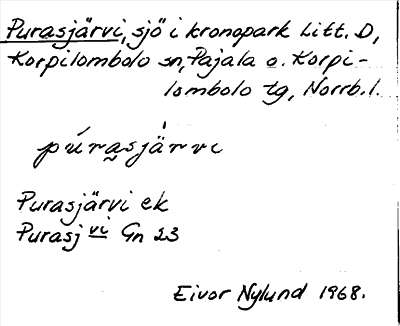 Purasjärvi, sjö i kronopark Litt. D,
Korpilombolo sn, Pajala o. Korpi-
lombolo tg, Norrb. l.
púrasjärvi
Purasjärvi ek
Purasj vi Gn 23
Eivor Nylund 1968.